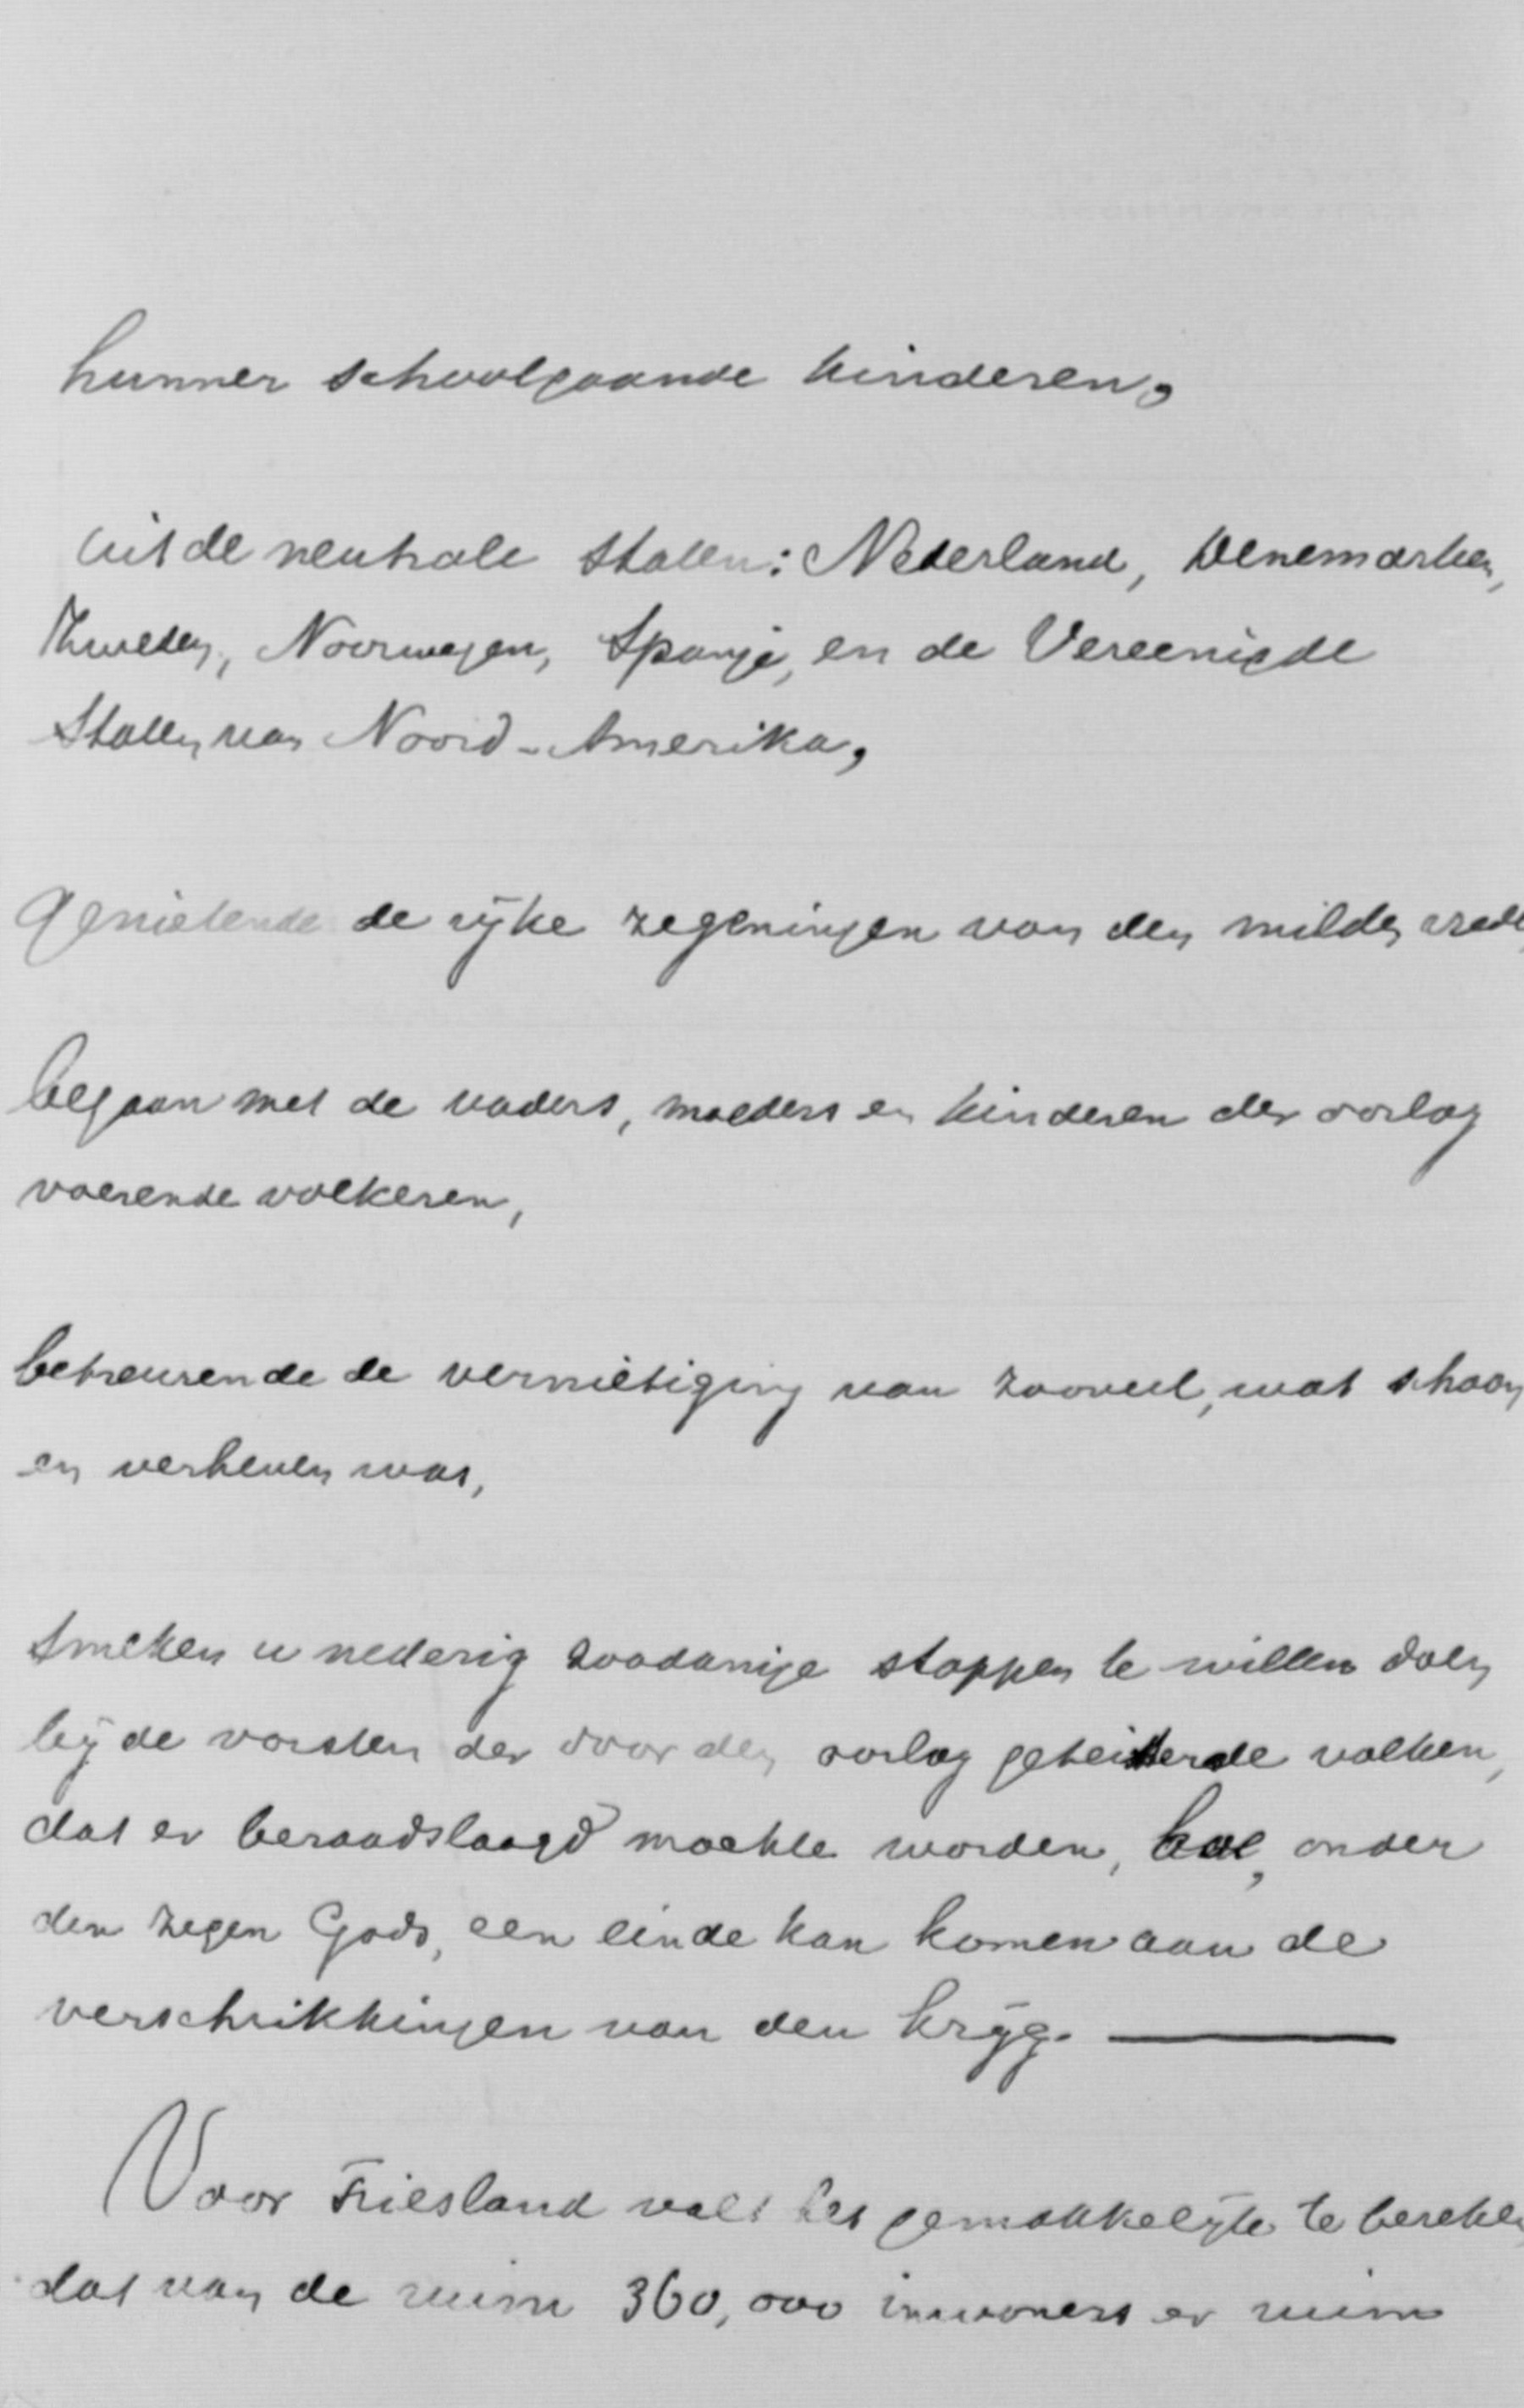 hunner schoolgaande kinderen,
uit de neutrale Staten: Nederland, Denemarken,
Zweden, Noorwegen, Spanje, en de Vereenigde
Staten van Noord-Amerika,
Genietende de rijke zegeningen van den milden vrede
begaan met de vaders, moeders en kinderen der oorlog
voerende volkeren,
betreurende de vernietiging van zooveel, wat schoon
en verheven was,
Smeken u nederig zoodanige stappen te willen doen
bij de vorsten der door den oorlog geteisterde volken,
dat er beraadslaagd mochte worden, hoe, onder
den zegen Gods, een einde kan komen aan de
verschrikkingen van den krijg.
Voor Friesland valt het gemakkelijk te bereken
dat van de ruim 360,000 inwoners er ruim